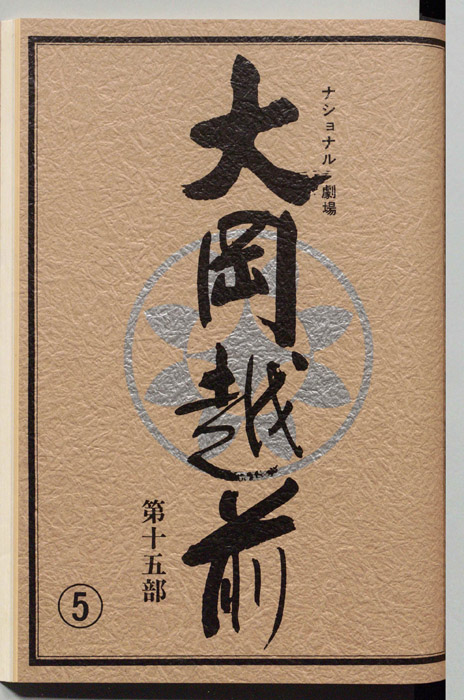 ナショナル劇場
大岡越前
第十五部
5